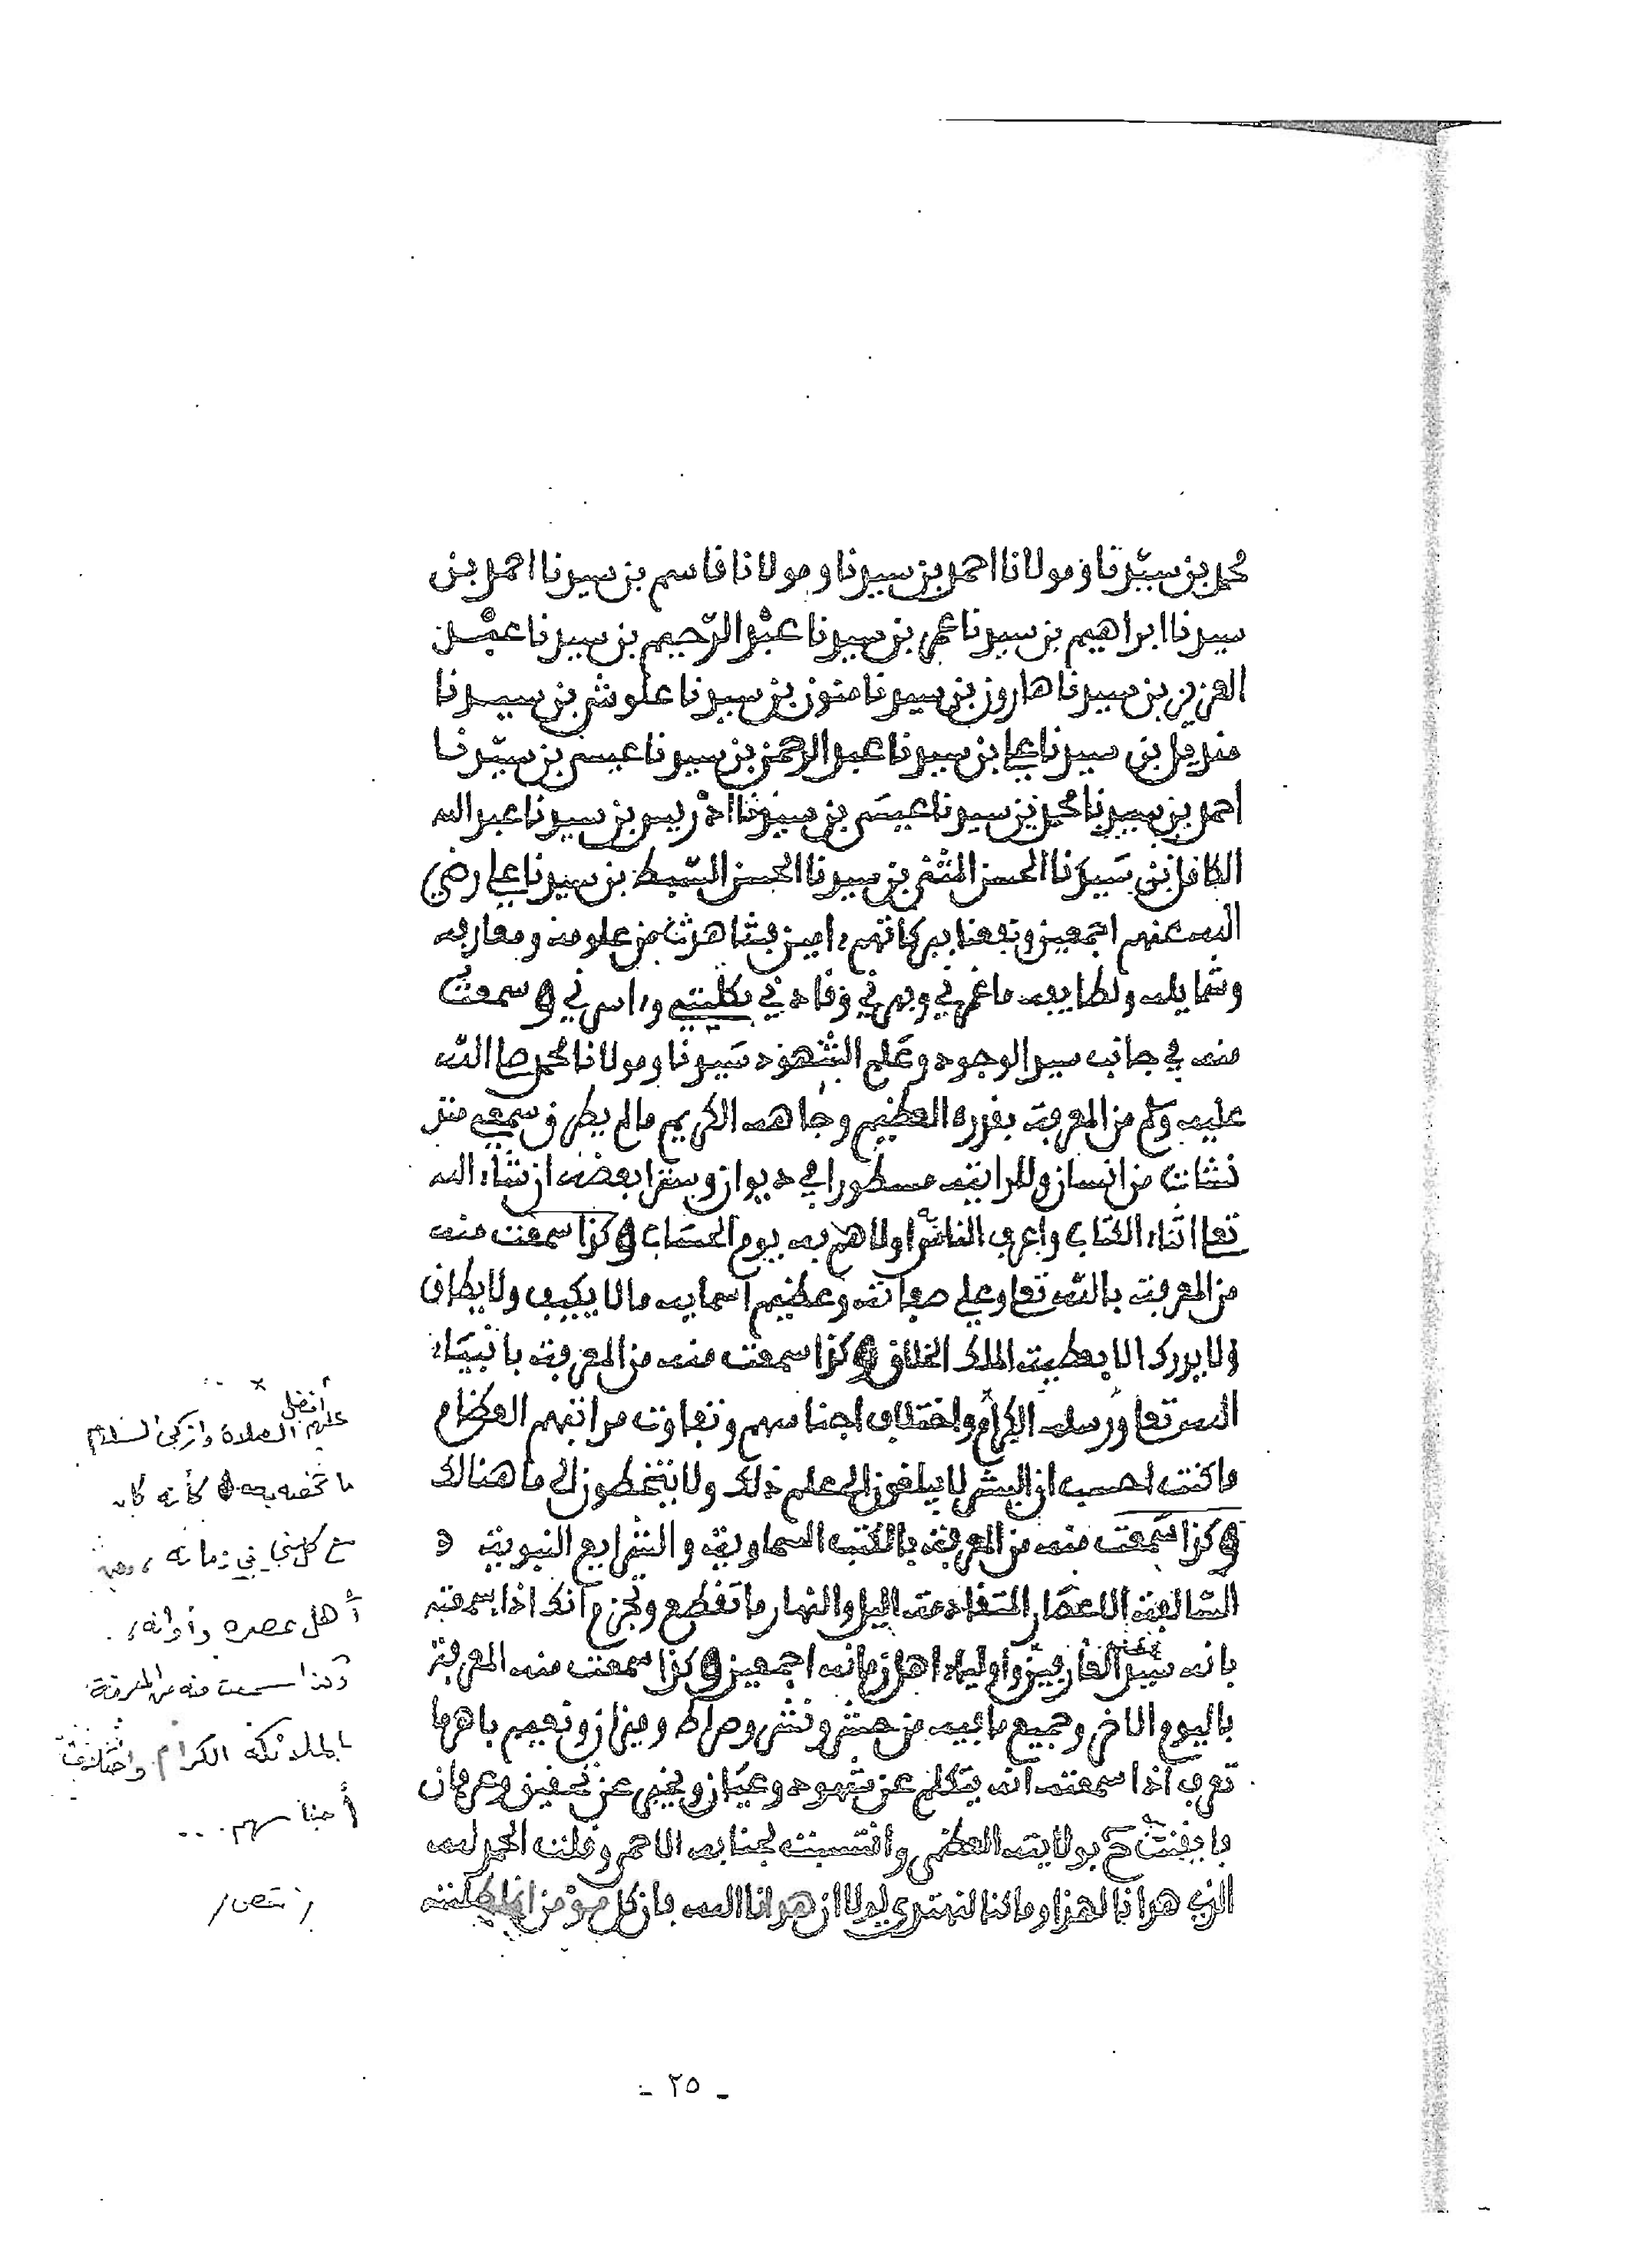 محمد بن سيدنا ومولانا احمد بن سيدنا ومولانا قاسم بن سيدنا احمد بن
سيدنا ابراهيم بن سيدنا عمر بن سيدنا عبد الرحيم بن سيدنا عبد
العزيز بن سيدنا هارون بن سيدنا قنون بن سيدنا علوش بن سيدنا
منديل بن سيدنا علي بن سيدنا عبد الرحمن بن سيدنا عيسى بن سيدنا
احمد بن سيدنا محمد بن سيدنا عيسى بن سيدنا ادريس بن سيدنا عبد الله
الكامل بن سيدنا الحسن المثنى بن سيدنا الحسن السبط بن سيدنا علي رضي
الله عنهم اجمعين ونفعنا ببركاتهم ءامين فشاهدت من علومه ومعارفه
وشمايله ولطايفه ما غمرني وبهرني وقادني بكليتي واسرني وسمعت
منه في جانب سيد الوجود وعلم الشهود سيدنا ومولانا محمد صلى الله
عليه وسلم من المعرفة بقدره العظيم وجاهه الكريم ما لم يطرق سمعي منذ
نشات من انسان ولا رايته مسطورا في ديوان وسترى بعضه ان شاء الله
تعالى اثناء الكتاب واعرف الناس به اولاهم به يوم الحساب وكذا سمعت منه
من المعرفة بالله تعالى وعلي صفاته وعظيم اسمايه ما لا يكيف ولا يطاق
ولا يدرك الا بعطية الملك الخلاق وكذا سمعت منه من المعرفة بانبياء
الله تعالى ورسله الكرام واختلاف اجناسهم وتفاوت مراتبهم العظام
ما كنت احسب ان البشر لا يبلغون الى علم ذلك ولا يتخطون الى ما هنالك
وكذا سمعت منه من المعرفة بالكتب السماوية والشرايع النبوية و
السالفة الاعصار المتقادمة اليل والنهار ما تقطع وتجزم انك اذا سمعته
بانه سيد العارفين وامام اولياء اهل زمانه اجمعين وكذا سمعت منه المعرفة
باليوم الاخر وجميع ما فيه من حشر ونشر وصراط وميزان ونعيم باهر ما
تعرف اذا سمعته انه يتكلم عن شهود وعيان ويخبر عن تحقيق وعرفان
فايقنت ح بولايته العظمى وانتسبت لجنابه الاحمى وقلت الحمد لله
الذي هدانا لهذا وما كنا لنهتدي لولا ان هدانا الله فان كل مؤمن
أفضل
عليهم الصلاة وأزكى السلام
ما تحسبه به كأنه كان
مع كل نبي في زمانه، ومن
أهل عصره وأوانه،
وكذا سمعت منه من المعرفة
بالملائكة الكرام واختلاف
أجناسهم...
انتهى
- ٢٥ -